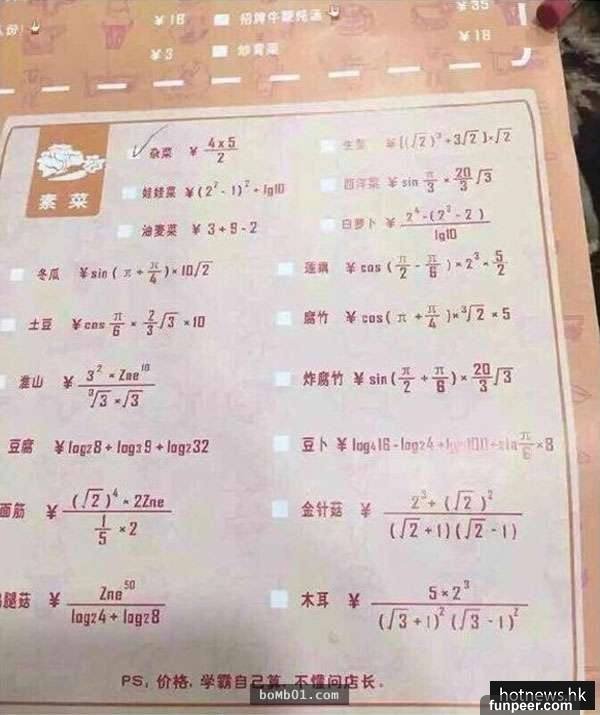 ¥18 招牌牛腱炖汤 ¥35
¥3 炒青菜 ¥18
素菜
杂菜 ¥ 4×5/2
生菜 ¥[(√2)³+3√2]×√2
娃娃菜 ¥(2²-1)²+lg10
西洋菜 ¥sin π/3 × 20/3 √3
油麦菜 ¥ 3+9-2
白萝卜 ¥ 2⁴-(2³-2)/lg10
冬瓜 ¥sin(π+π/4)×10√2
莲藕 ¥cos(π/2-π/6)×2³×5/2
土豆 ¥cos π/6 × 2/3 √3 ×10
腐竹 ¥cos(π+π/4)×³√2×5
淮山 ¥ 3²×2lne¹⁰/³√3×√3
炸腐竹 ¥sin(π/2+π/6)×20/3 √3
豆腐 ¥log₂8+log₃9+log₂32
豆卜 ¥log₄16-log₂4+lg100+sin π/6 ×8
面筋 ¥ (√2)⁴×2lne/1/5×2
金针菇 ¥ 2³+(√2)²/(√2+1)(√2-1)
腿菇 ¥ 2lne⁵⁰/log₂4+log₂8
木耳 ¥ 5×2³/(√3+1)²(√3-1)²
PS，价格，学霸自己算，不懂问店长。
boMb01.com
hotnews.hk
funpeer.com